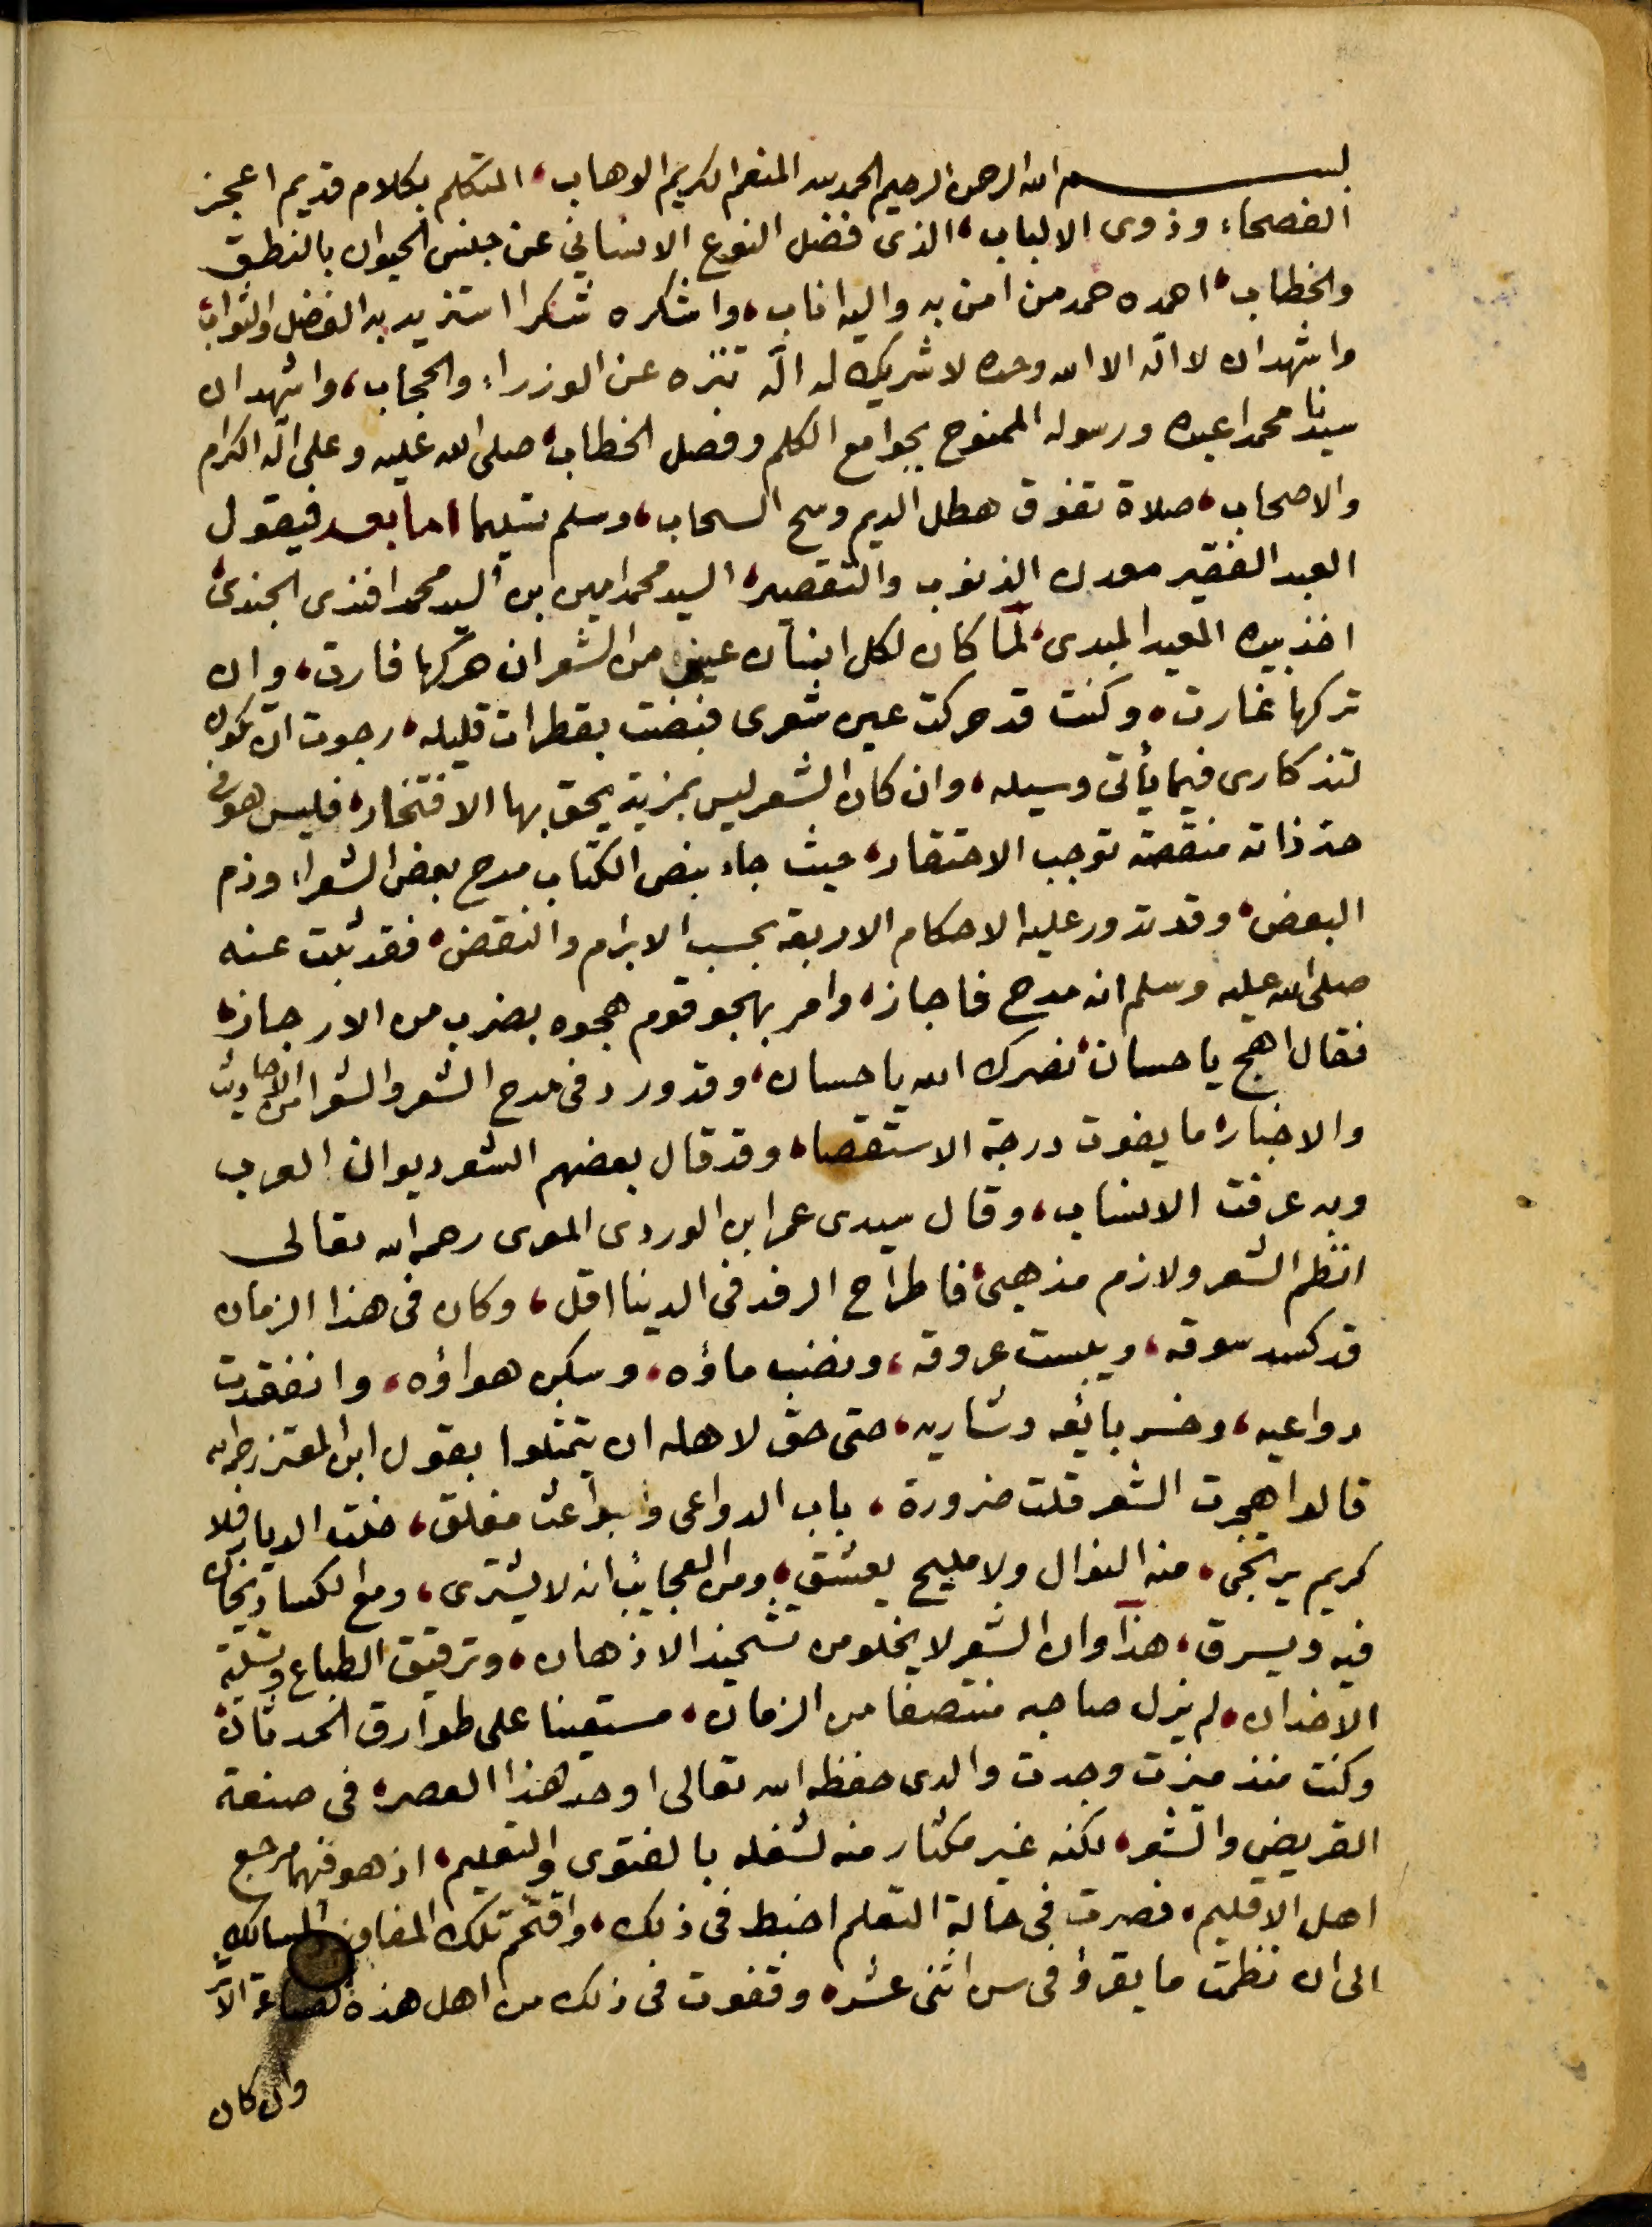 بسم الله الرحمن الرحيم الحمد لله المنعم الكريم الوهاب، المتكلم بكلام قديم اعجز
الفصحاء وذوى الالباب، الذى فضل النوع الانساني عن جنس الحيوان بالنطق
والخطاب، احمده حمد من امن به واليه اناب، واشكره شكرا استزيد به الفضل والثواب،
واشهد ان لا اله الا الله وحده لا شريك له اله تنزه عن الوزراء والحجاب، واشهد ان
سيدنا محمدا عبده ورسوله الممنوح بجوامع الكلم وفصل الخطاب، صلى الله عليه وعلى اله الكرام
والاصحاب، صلاة تفوق هطل الديم وسح السحاب، وسلم تسليما اما بعد فيقول
العبد الفقير معدن الذنوب والتقصير، السيد محمد امين ابن السيد محمد افندى الجندى،
اخذ بيده المعيد المبدى، لما كان لكل انسان عين من الشعر ان حركها فارت، وان
تركها غارت، وكنت قد حركت عين شعرى فبضت بقطرات قليله، رجوت ان تكون
لتذكارى فيما يأتى وسيله، وان كان الشعر ليس بمزية يحق بها الافتخار، فليس هو فى
حد ذاته منقصة توجب الاحتقار، حيث جاء بنص الكتاب مدح بعض الشعراء وذم
البعض، وقد تدور عليه الاحكام الاربعة بحسب الابرام والنقض، فقد ثبت عنه
صلى الله عليه وسلم انه مدح فاجاز، وامر بهجو قوم هجوه بضرب من الارجاز،
فقال اهج يا حسان، نصرك الله يا حسان، وقد ورد فى مدح الشعر والشعرا من الاحاديث
والاخبار، ما يفوت درجة الاستقصا، وقد قال بعضهم الشعر ديوان العرب
وبه عرفت الانساب، وقال سيدى عمر ابن الوردى المعرى رحمه الله تعالى
انظم الشعر ولازم مذهبى، فاطراح الرفد فى الدنيا اقل، وكان فى هذا الزمان
قد كسد سوقه، ويبست عروقه، ونضب ماؤه، وسكن هواؤه، وانفقدت
دواعيه، وخسر بائعه وشاريه، حتى حق لاهله ان يتمثلوا بقول ابن المعتز رحمه الله
قالوا هجرت الشعر قلت ضرورة، باب الدواعى والبواعث مغلق، خلت الديار فلا
كريم يرتجى، منه النوال ولا مليح يعشق، ومن العجائب انه لا يشترى، ومع الكساد يخان
فيه ويسرق، هذا وان الشعر لا يخلو من تشحيذ الاذهان، وترقيق الطباع وتسلية
الاخدان، لم يزل صاحبه منتصفا من الزمان، مستعينا على طوارق الحدثان،
وكنت منذ ميزت وجدت والدى حفظه الله تعالى اوحد هذا العصر، فى صنعة
القريض والشعر، لكنه غير مكثار منه لشغله بالفتوى والتعليم، اذ هو فيهما مرجع
اهل الاقليم، فصرت فى حالة التعلم اخبط فى ذلك، واقتحم تلك المفاوز والمسالك
الى ان نظمت ما يقرؤ فى سن اثنى عشر، وقفوت فى ذلك من اهل هذه الصناعة الاثر
وان كان